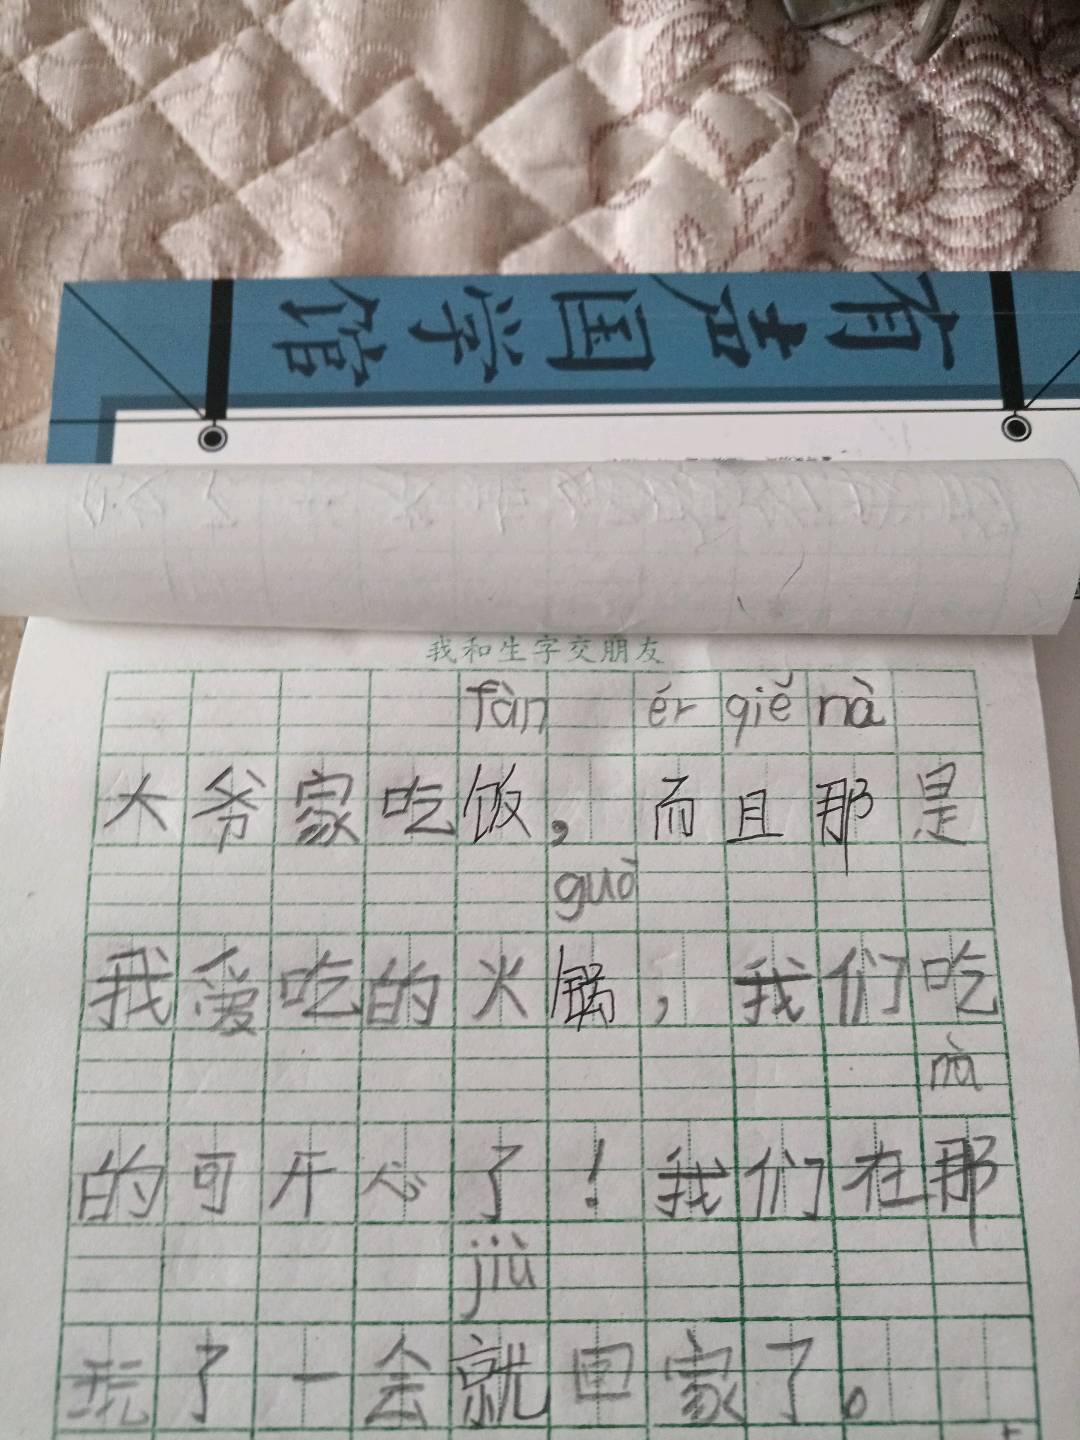 有声国学馆
我和生字交朋友
fàn ér qiě nà
大爷家吃饭，而且那是
guō
我爱吃的火锅，我们吃
nà
的可开心了！我们在那
jiù
玩了一会就回家了。